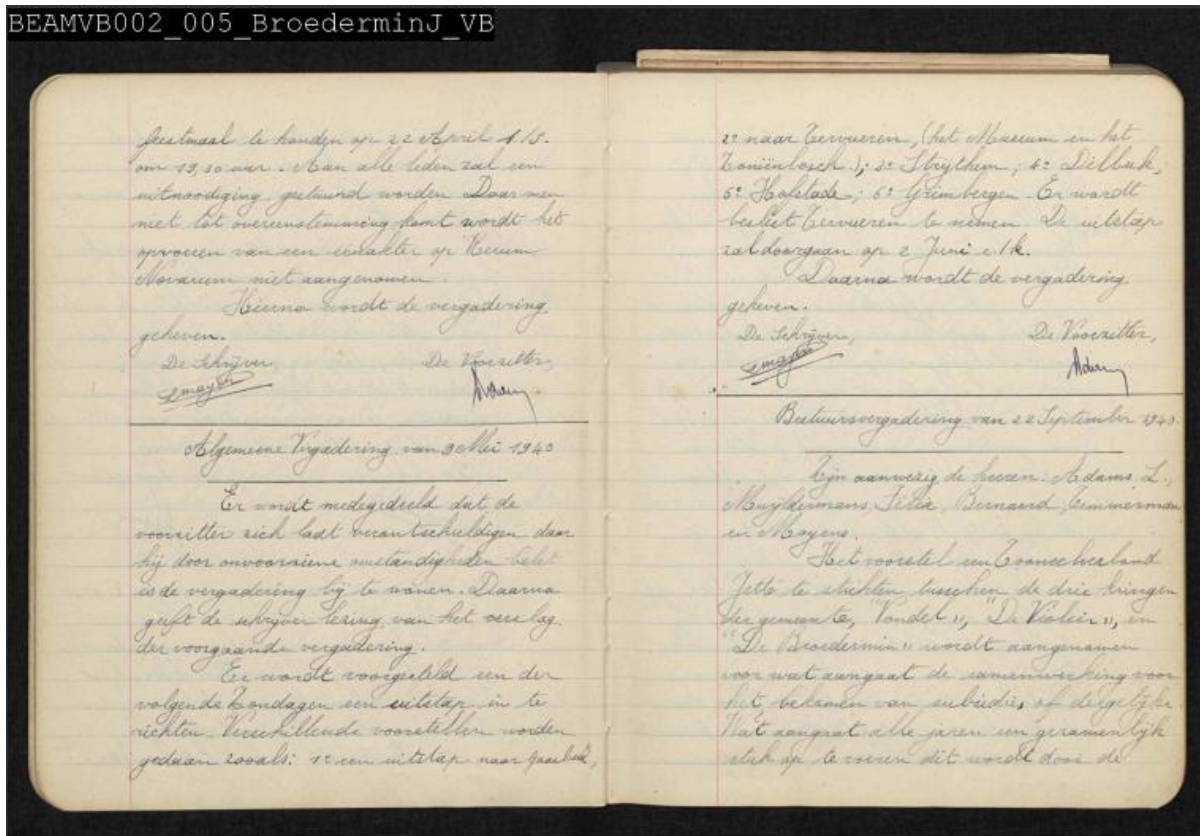 BEAMVB002_005_BroederminJ_VB
feestmaal te houden op 22 April a/s.
om 19,30 uur. Aan alle leden zal een
uitnoodiging gestuurd worden Daar men
niet tot overeenstemming komt wordt het
opvoeren van een éénakter op "Rerum
Novarum niet aangenomen.
Hierna wordt de vergadering
geheven.
De Schrijver, De Voorzitter,
Algemeene Vergadering van 9 Mei 1940
Er wordt medegedeeld dat de
voorzitter zich laat verantschuldigen daar
hij door onvoorziene omstandigheden belet
is de vergadering bij te wonen. Daarna
geeft de schrijver lezing van het verslag
der voorgaande vergadering.
Er wordt voorgesteld een der
volgende Zondagen een uitstap in te
richten. Verschillende voorstellen worden
gedaan zooals: 1° een uitstap naar Gaasbeek,
2° naar Tervueren, (het Museum en het
); 3° Strythem; 4° Dilbeek;
5° Hofstade; 6° Grimbergen. Er wordt
beslist Tervueren te nemen. De uitstap
zal doorgaan op 2 Juni e/k.
Daarna wordt de vergadering
geheven.
De Schrijver, De Voorzitter,
Bestuursvergadering van 22 September 1940.
Zijn aanwezig de heeren: Adams L.,
Muyldermans, Félix, Bernaerd, Timmerman
en Mayens.
Het voorstel een Tooneelverbond
Jette te stichten tusschen de drie kringen
der gemeente, "Vondel", "De Violier", en
"De Broedermin" wordt aangenomen
voor wat aangaat de samenwerking voor
het bekomen van subsidies of dergelijke.
Wat aangaat alle jaren een gezamenlijk
stuk op te voeren dit wordt door de